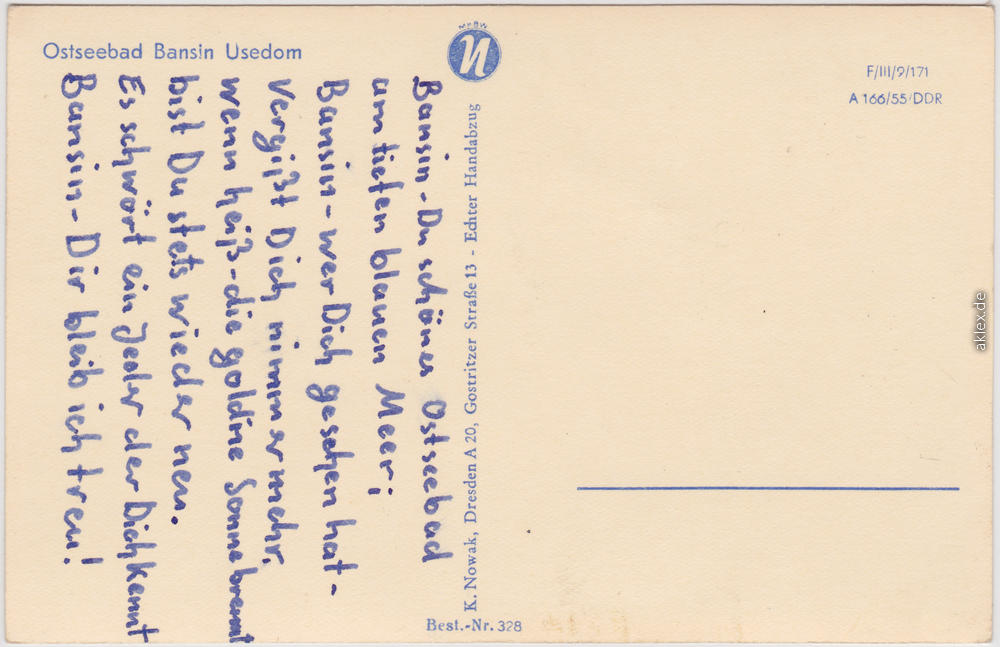 Ostseebad Bansin Usedom
Bansin - Du schönes Ostseebad
am tiefen blauen Meer;
Bansin - wer Dich gesehen hat -
Vergißt Dich nimmermehr.
wenn heiß - die goldne Sonne brennt
bist Du stets wieder neu.
Es schwört ein Jeder der Dich kennt
Bansin - Dir bleib ich treu!
MKBW
N
K. Nowak, Dresden A 20, Gostritzer Straße 13 - Echter Handabzug
Best.-Nr. 328
F/III/9/171
A 166/55/DDR
aklex.de